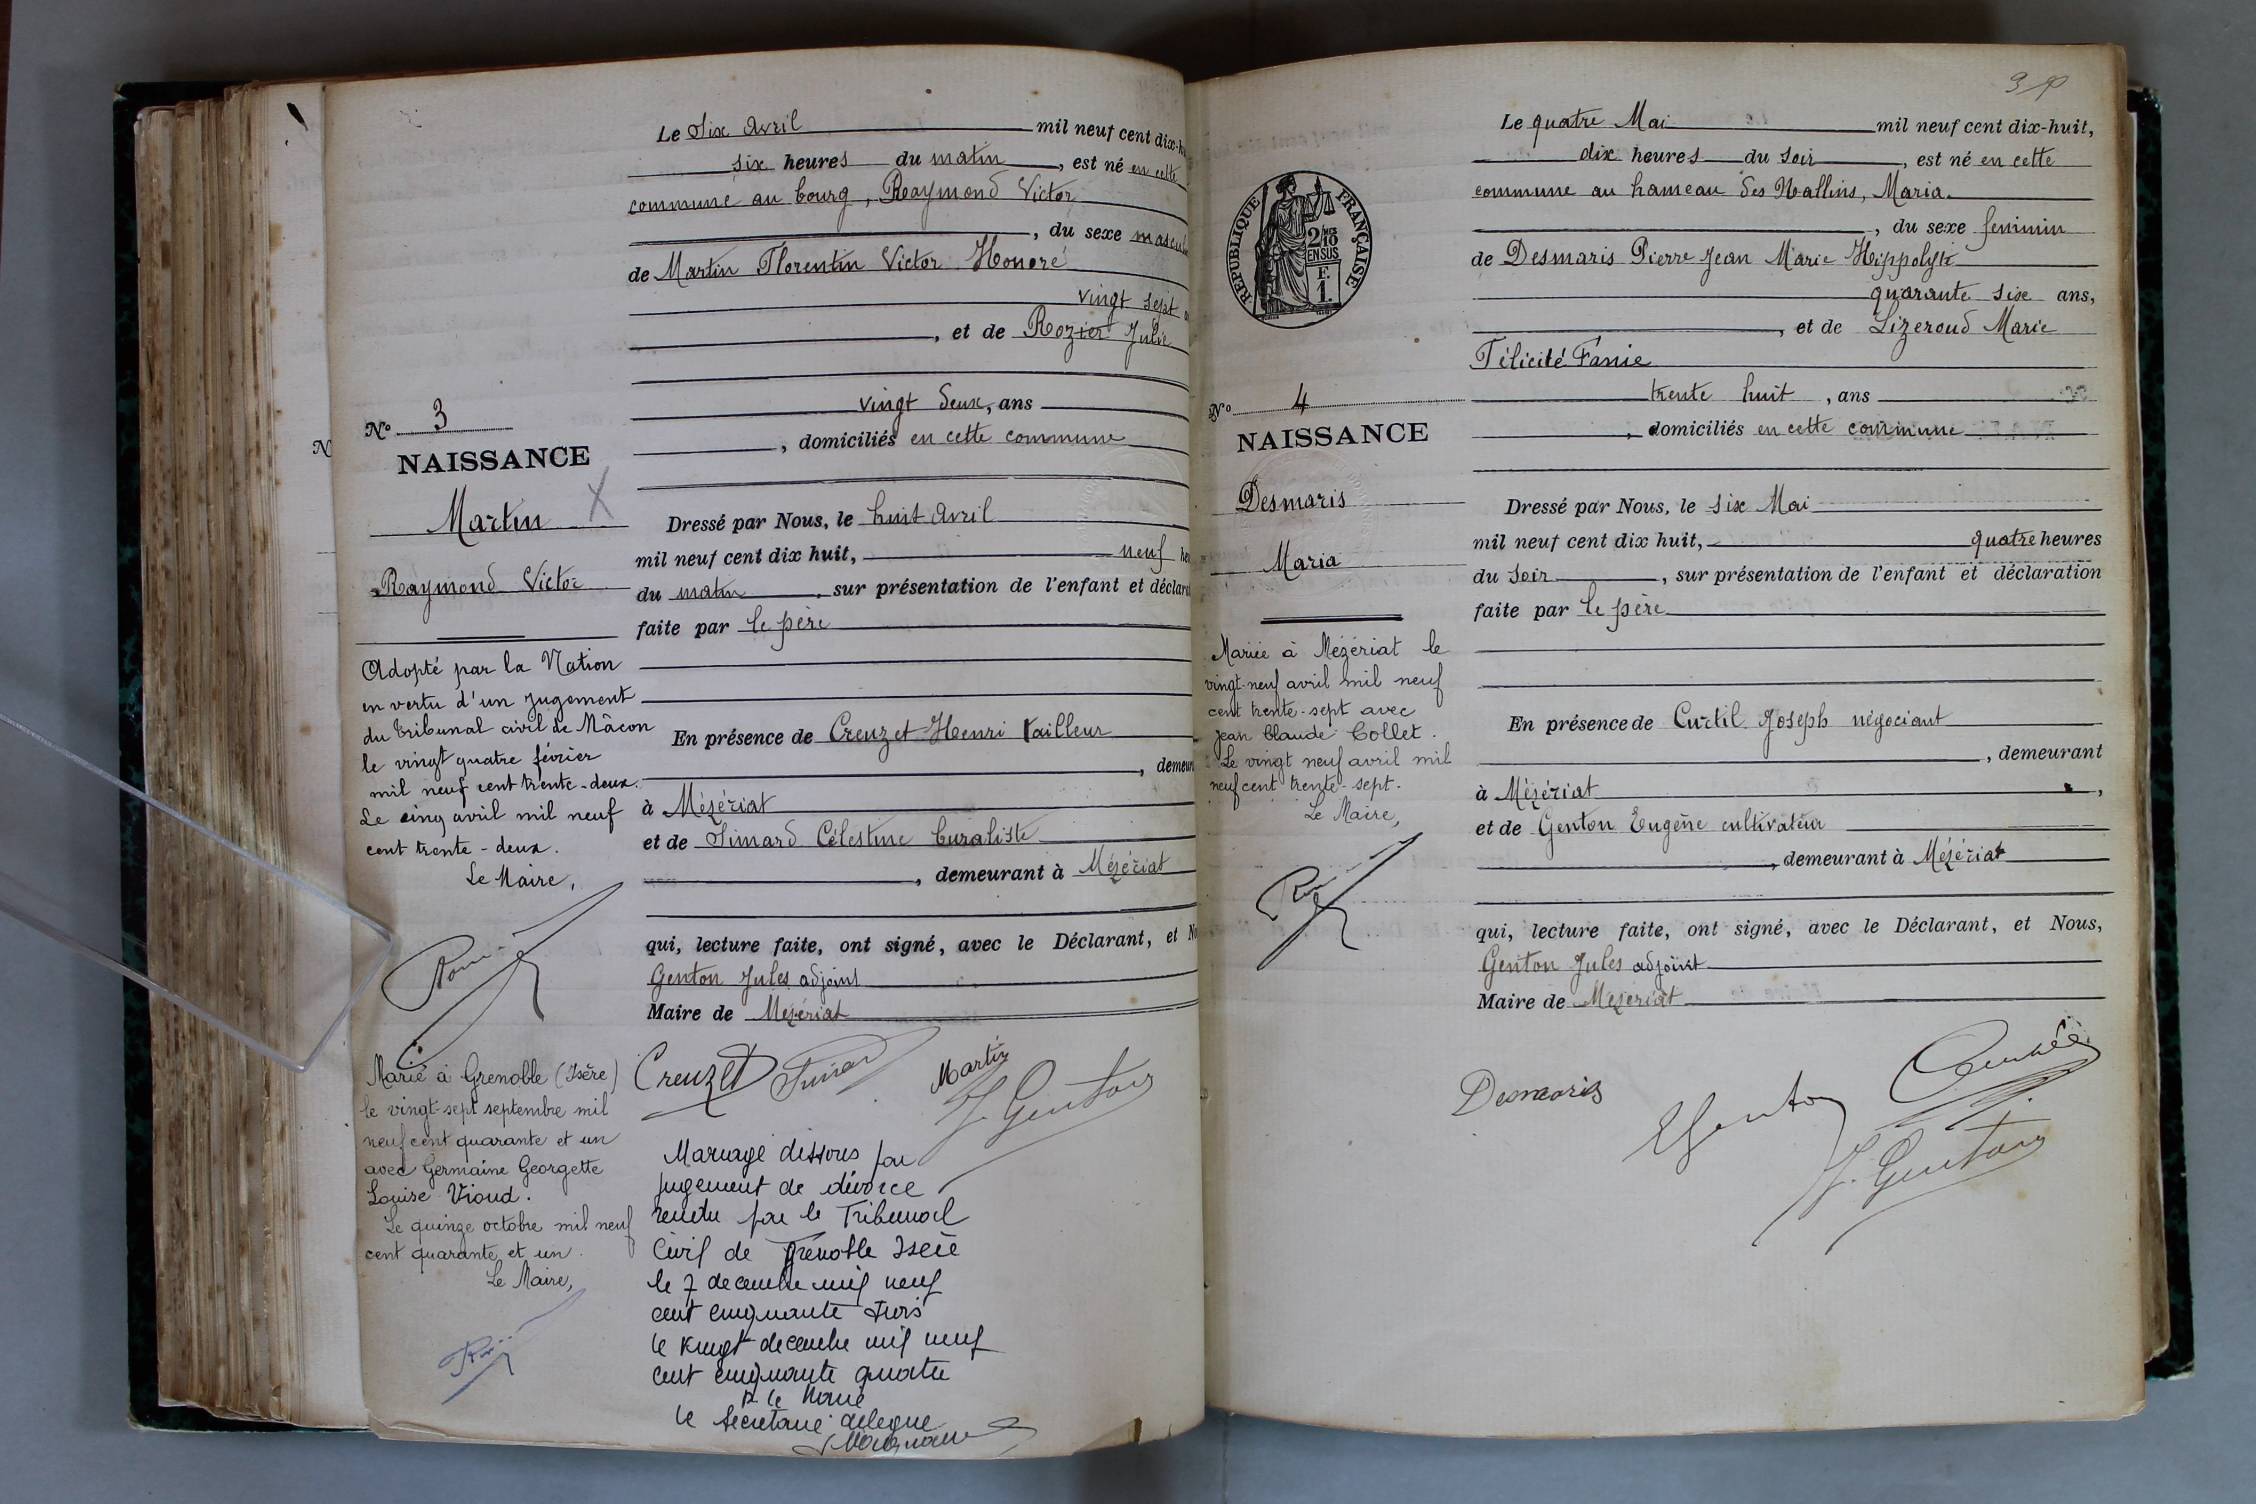 Le Six Avril mil neuf cent dix-hu
six heures du matin, est né en cette
commune au bourg, Raymond Victor
, du sexe mascul
de Martin Florentin Victor Honoré
vingt sept
, et de Rozier Julie
vingt deux, ans
, domiciliés en cette commune
N
No 3
NAISSANCE
Martin X
Raymond Victor
Dressé par Nous, le huit Avril
mil neuf cent dix huit, neuf heu
du matin, sur présentation de l'enfant et déclara
faite par le père
En présence de Creuzet Henri tailleur
, demeur
à Mézériat
et de Simard Célestine buraliste
, demeurant à Mézériat
qui, lecture faite, ont signé, avec le Déclarant, et No
Genton Jules adjoint
Maire de Mézériat
Creuzet Martin
J. Genton
Adopté par la Nation
en vertu d'un jugement
du tribunal civil de Mâcon
le vingt quatre février
mil neuf cent trente-deux.
Le cinq avril mil neuf
cent trente-deux.
Le Maire,
Marié à Grenoble (Isère)
le vingt-sept septembre mil
neuf cent quarante et un
avec Germaine Georgette
Louise Vioud.
Le quinze octobre mil neuf
cent quarante et un.
Le Maire,
Mariage dissous par
jugement de divorce
rendu par le Tribunal
Civil de Grenoble Isère
le 7 decembre mil neuf
cent cinquante trois
le vingt decembre mil neuf
cent cinquante quatre
P. le Maire
le Secrétaire délégué
Le quatre Mai mil neuf cent dix-huit,
dix heures du soir, est né en cette
commune au hameau des Nallins, Maria.
, du sexe feminin
de Desmaris Pierre Jean Marie Hippolyte
quarante six ans,
, et de Lizeroud Marie
Félicité Fanie
trente huit, ans
, domiciliés en cette commune
REPUBLIQUE FRANÇAISE
2/10
EN SUS
F.
1.
No 4
NAISSANCE
Desmaris
Maria
Dressé par Nous, le six Mai
mil neuf cent dix huit, quatre heures
du soir, sur présentation de l'enfant et déclaration
faite par le père
En présence de Curtil Joseph négociant
, demeurant
à Mézériat,
et de Genton Eugène cultivateur
, demeurant à Mézériat
qui, lecture faite, ont signé, avec le Déclarant, et Nous,
Genton Jules adjoint
Maire de Mézériat
Desmaris
E Genton
J. Genton
Mariée à Mézériat le
vingt-neuf avril mil neuf
cent trente-sept avec
Jean Claude Collet.
Le vingt neuf avril mil
neuf cent trente-sept.
Le Maire,